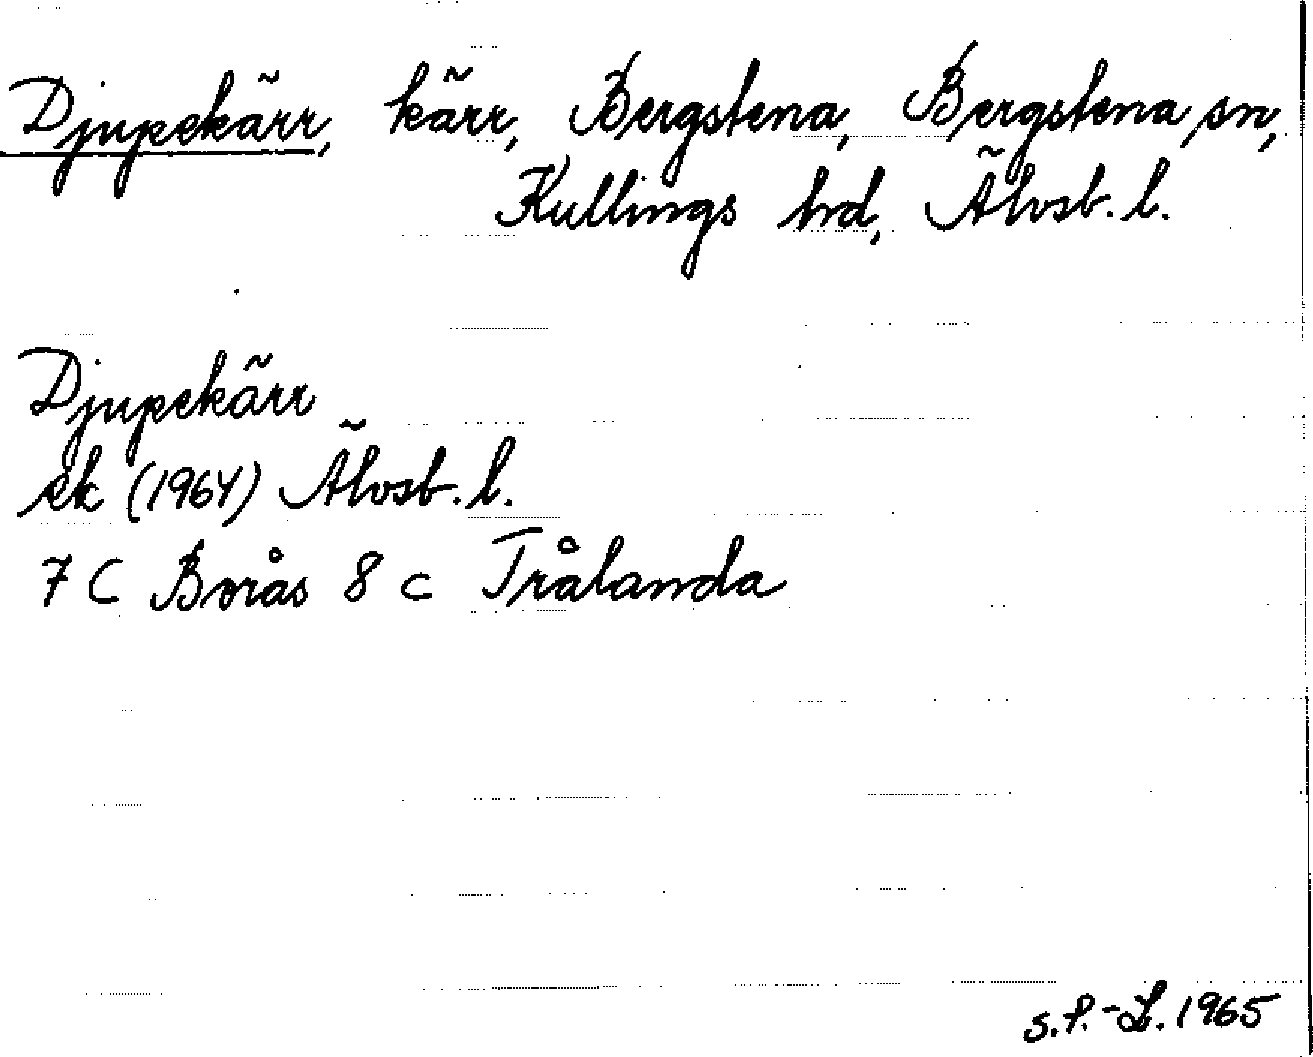 Djupekärr, kärr, Bergstena, Bergstena sn,
Kullings hd, Älvsb. l.
Djupekärr
ek (1964) Älvsb. l.
7 C Borås 8 c Trålanda
S.P.-L. 1965